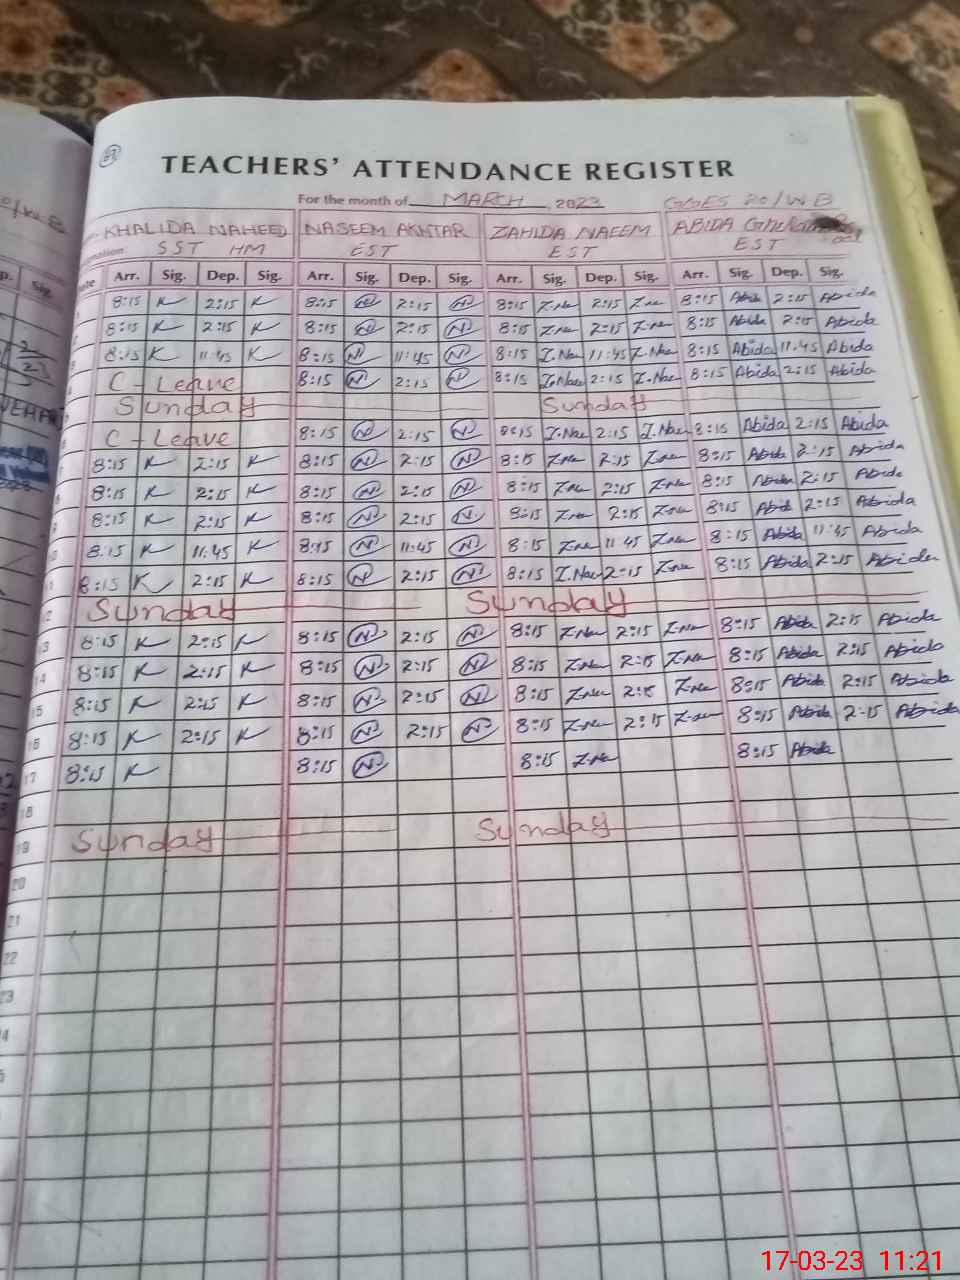 TEACHERS' ATTENDANCE REGISTER
For the month of MARCH, 2023 GGES 20/W B
KHALIDA NAHEED NASEEM AKHTAR ZAHIDA NAEEM ABIDA
SST HM EST EST EST
Arr. Sig. Dep. Sig. Arr. Sig. Dep. Sig. Arr. Sig. Dep. Sig. Arr. Sig. Dep. Sig.
8:15 K 2:15 K 8:15 N 2:15 N 8:15 Z.Nae 2:15 Z.Nae 8:15 Abida 2:15 Abida
8:15 K 2:15 K 8:15 N 2:15 N 8:15 Z.Nae 2:15 Z.Nae 8:15 Abida 2:15 Abida
8:15 K 11:45 K 8:15 N 11:45 N 8:15 Z.Nae 11:45 Z.Nae 8:15 Abida 11:45 Abida
C - Leave 8:15 N 2:15 N 8:15 Z.Nae 2:15 Z.Nae 8:15 Abida 2:15 Abida
Sunday Sunday
C - Leave 8:15 N 2:15 N 8:15 Z.Nae 2:15 Z.Nae 8:15 Abida 2:15 Abida
8:15 K 2:15 K 8:15 N 2:15 N 8:15 Z.Nae 2:15 Z.Nae 8:15 Abida 2:15 Abida
8:15 K 2:15 K 8:15 N 2:15 N 8:15 Z.Nae 2:15 Z.Nae 8:15 Abida 2:15 Abida
8:15 K 2:15 K 8:15 N 2:15 N 8:15 Z.Nae 2:15 Z.Nae 8:15 Abida 2:15 Abida
8:15 K 11:45 K 8:15 N 11:45 N 8:15 Z.Nae 11:45 Z.Nae 8:15 Abida 11:45 Abida
8:15 K 2:15 K 8:15 N 2:15 N 8:15 Z.Nae 2:15 Z.Nae 8:15 Abida 2:15 Abida
Sunday Sunday
13 8:15 K 2:15 K 8:15 N 2:15 N 8:15 Z.Nae 2:15 Z.Nae 8:15 Abida 2:15 Abida
14 8:15 K 2:15 K 8:15 N 2:15 N 8:15 Z.Nae 2:15 Z.Nae 8:15 Abida 2:15 Abida
15 8:15 K 2:15 K 8:15 N 2:15 N 8:15 Z.Nae 2:15 Z.Nae 8:15 Abida 2:15 Abida
16 8:15 K 2:15 K 8:15 N 2:15 N 8:15 Z.Nae 2:15 Z.Nae 8:15 Abida 2:15 Abida
17 8:15 K 8:15 N 8:15 Z.Nae 8:15 Abida
18
19 Sunday Sunday
20
21
22
23
17-03-23 11:21